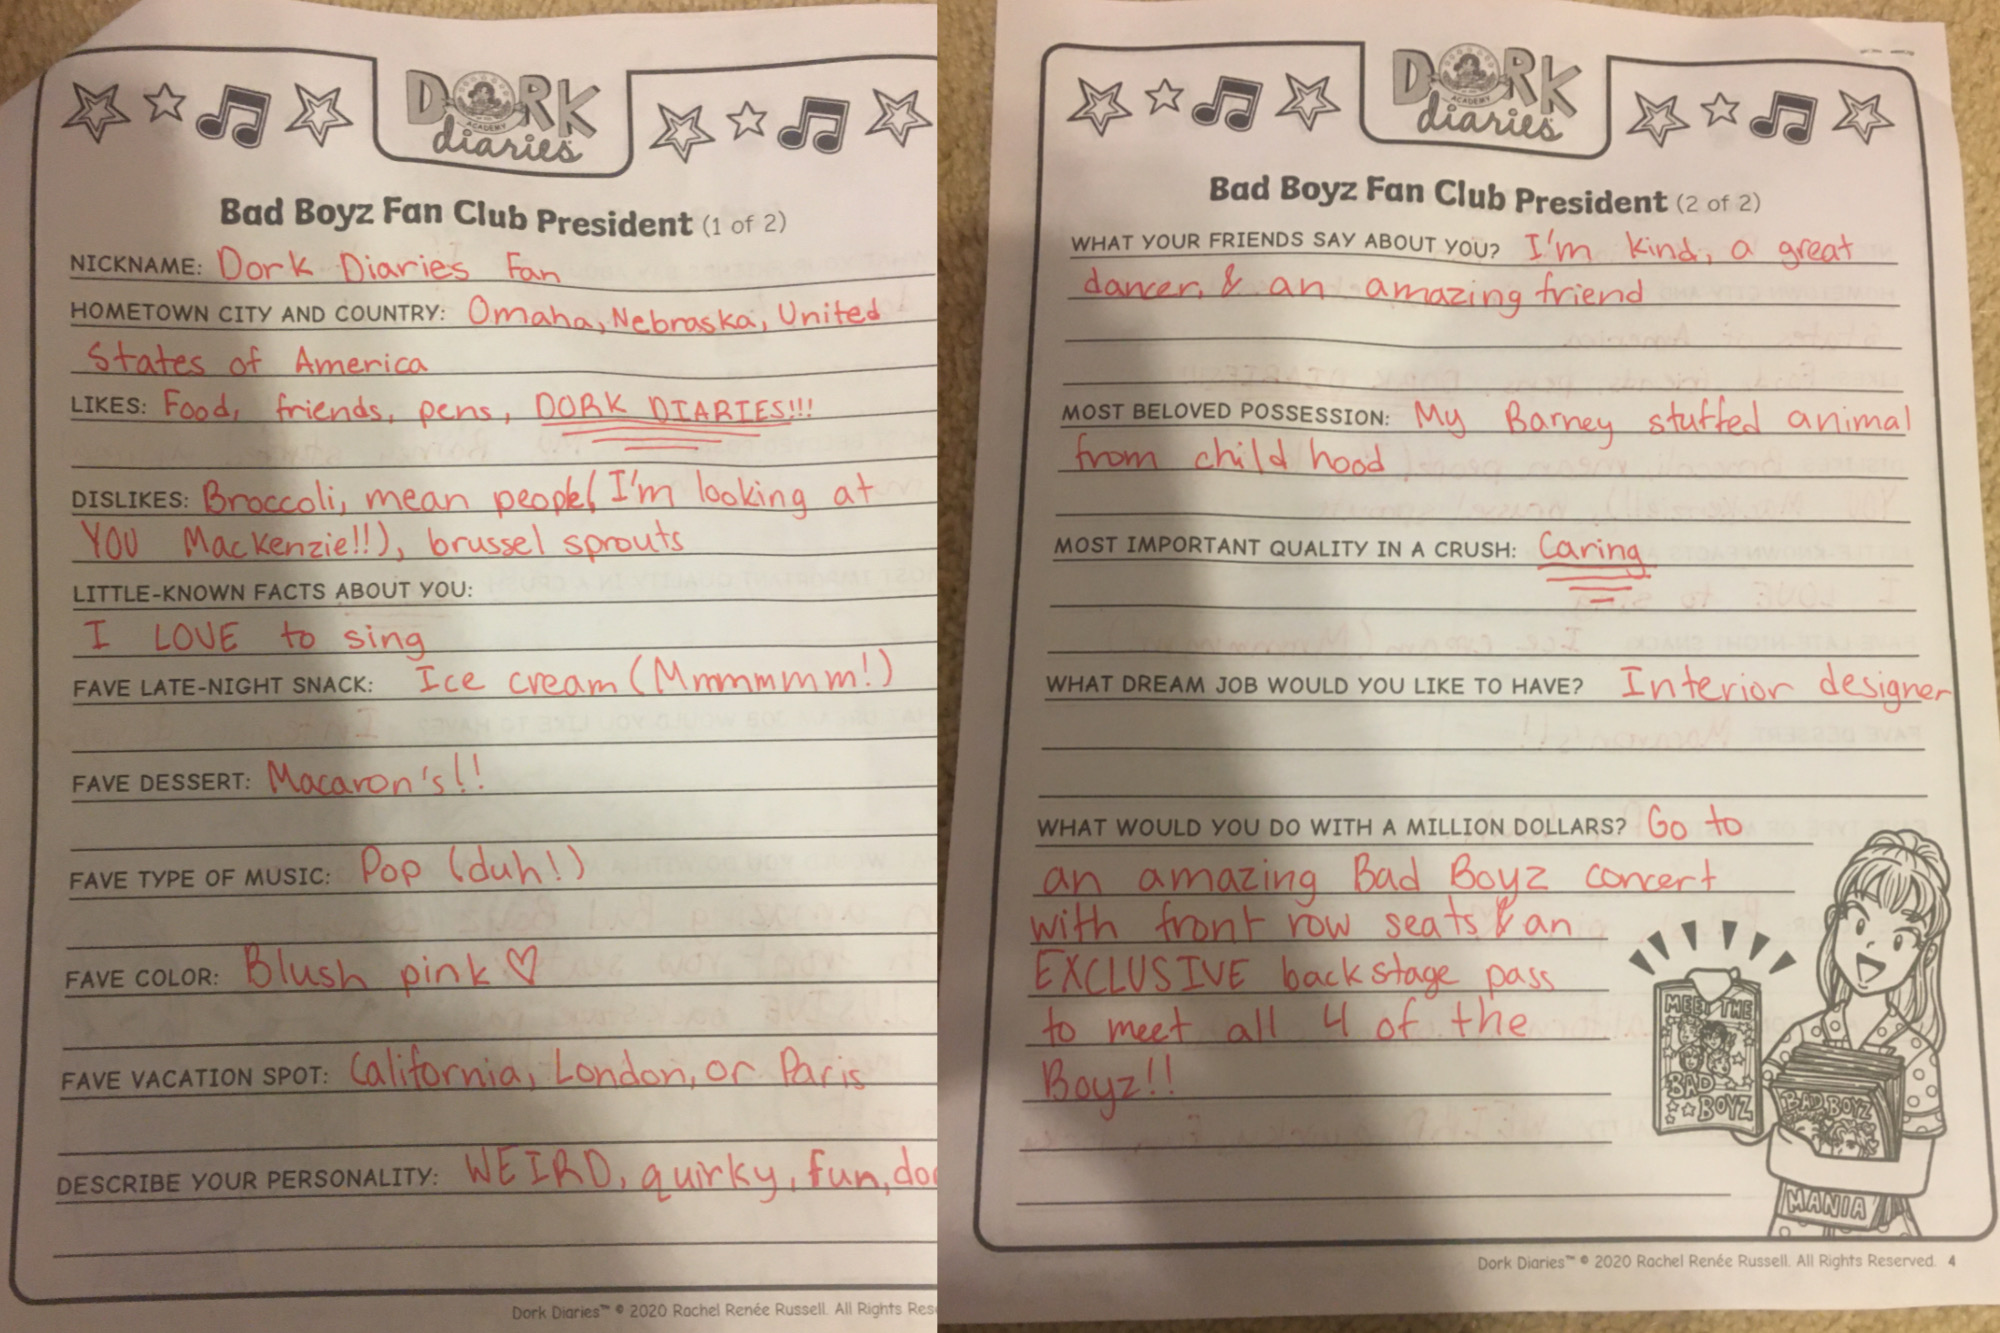 DORK
ACADEMY
diaries
Bad Boyz Fan Club President (1 of 2)
NICKNAME: Dork Diaries Fan
HOMETOWN CITY AND COUNTRY: Omaha, Nebraska, United
States of America
LIKES: Food, friends, pens, DORK DIARIES!!!
DISLIKES: Broccoli, mean people( I'm looking at
YOU MacKenzie!!), brussel sprouts
LITTLE-KNOWN FACTS ABOUT YOU:
I LOVE to sing
FAVE LATE-NIGHT SNACK: Ice cream (Mmmmmm!)
FAVE DESSERT: Macaron's!!
FAVE TYPE OF MUSIC: Pop (duh!)
FAVE COLOR: Blush pink ♡
FAVE VACATION SPOT: California, London, or Paris
DESCRIBE YOUR PERSONALITY: WEIRD, quirky, fun,
Dork Diaries™ © 2020 Rachel Renée Russell. All Rights
DORK
ACADEMY
diaries
Bad Boyz Fan Club President (2 of 2)
WHAT YOUR FRIENDS SAY ABOUT YOU? I'm kind, a great
dancer, & an amazing friend
MOST BELOVED POSSESSION: My Barney stuffed animal
from childhood
MOST IMPORTANT QUALITY IN A CRUSH: Caring
WHAT DREAM JOB WOULD YOU LIKE TO HAVE? Interior designer
WHAT WOULD YOU DO WITH A MILLION DOLLARS? Go to
an amazing Bad Boyz concert
with front row seats & an
EXCLUSIVE backstage pass
to meet all 4 of the
Boyz!!
MEET THE
BAD
BOYZ
BAD BOYZ
MANIA
Dork Diaries™ © 2020 Rachel Renée Russell. All Rights Reserved. 4